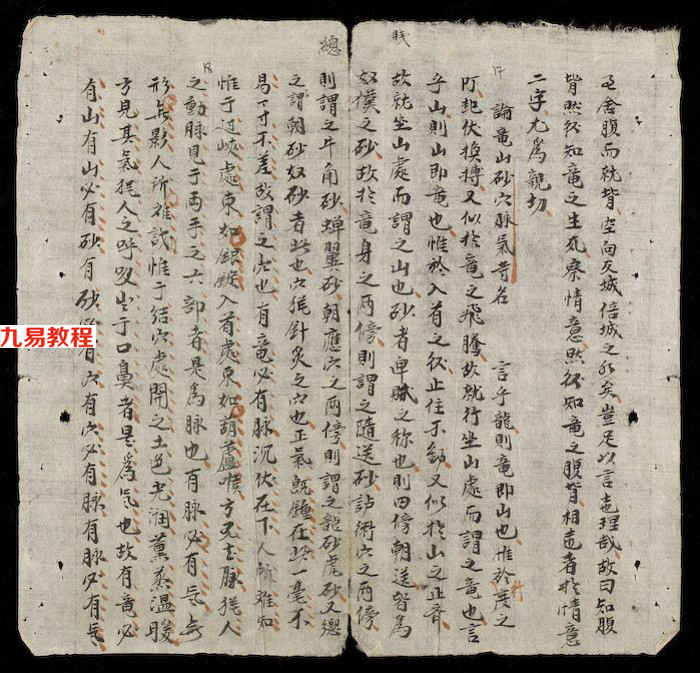 乏舍腹而就背空向反城倍城之外矣豈足以言地理哉故曰知腹
背然後知竜之生死察情意然後知竜之腹背相連者於情意
二字尤爲親切
論竜山砂穴脉氣苛名 言乎龍則竜即山也惟於度之
行起伏換搏又似於竜之飛騰故就行坐山處而謂之竜也言
乎山則山即竜也惟於入首之後止住不動又似於山之正齐
故就坐山處而謂之山也砂者卑賤之称也則四傍朝送皆爲
奴僕之砂故於竜身之两傍則謂之隨送砂訮術穴之两傍
則謂之牛角砂蟬翼砂朝應穴之两傍則謂之龍砂虎砂又總
之謂朝砂奴砂者此也穴猶針灸之穴也正氣既鍾在此一毫不
易一寸不差故謂之穴也有竜必有脉沉伏在下人所难知
惟于过峽處束如銀錠入首處束如胡蘆㥃方見玄脉猶人
之動脉見于两手之六部者是爲脉也有脉必有气無
形無影人所难识惟于结穴處開之土色光润薰蒸温暖
方見其氣猶人之呼吸出于口鼻者是爲气也故有竜必
有山有山必有砂有砂必有穴有穴必有脉有脉必有气
賎
總
17
18
行
九易教程